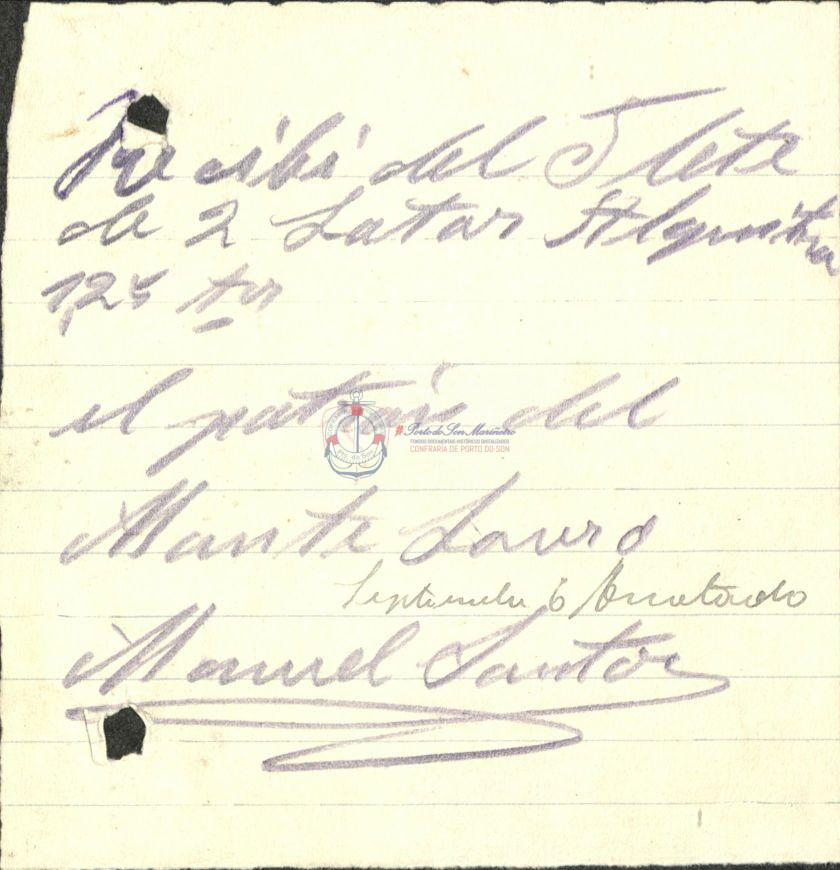 Recibi del Flete
de 2 Latas Alquitran
1,25 pts
el patrón del
Monte Louro
Septiembre 6 Anotado
Manuel Santos
#Porto do Son Mariñeiro
FONDOS DOCUMENTAIS HISTÓRICOS DIGITALIZADOS
CONFRARÍA DE PORTO DO SON